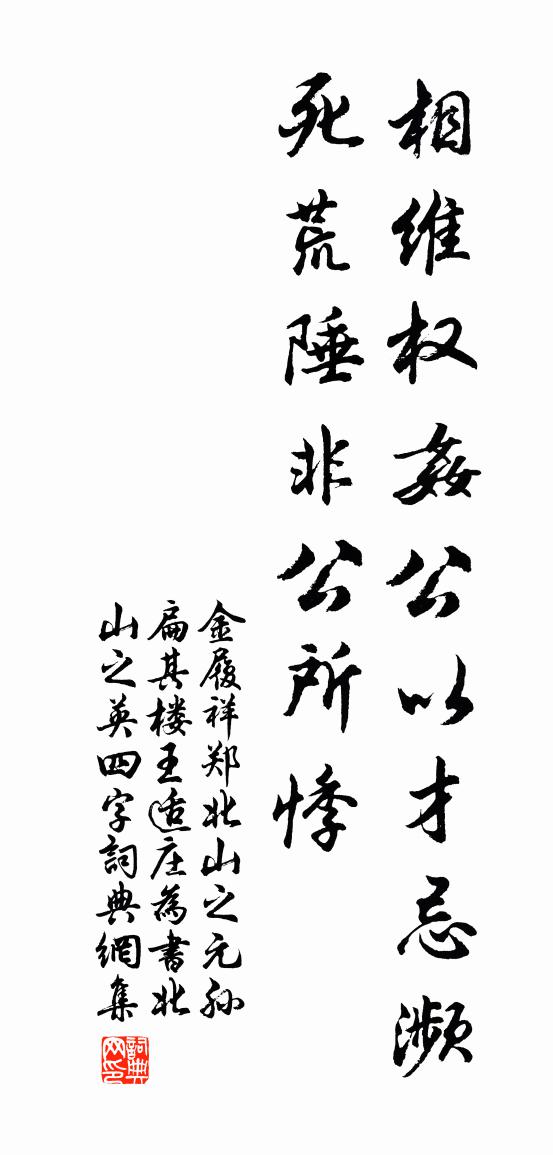 相维权姦公以才忌濒
死荒陲非公所悸
金履祥郑北山之元孙
扁其楼王适庄为书北
山之英四字詞典網集
詞典网印